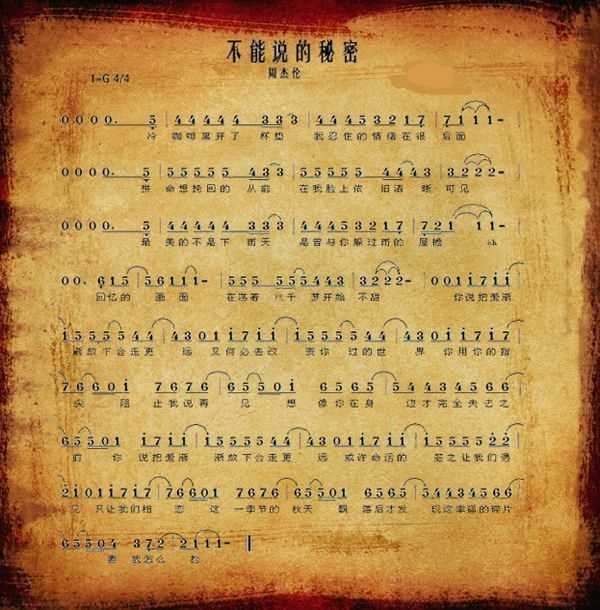 不能说的秘密
周杰伦
1=G 4/4
0 0 0 0. 5 | 4 4 4 4 4 3 3 3 | 4 4 4 5 3 2 1 7 | 7 1 1 1 - |
冷 咖啡离开了 杯垫 我忍住的情绪在很 后面
0 0 0 0. 5 | 5 5 5 5 5 4 3 3 | 5 5 5 5 5 4 4 4 3 | 3 2 2 2 - |
拼 命想挽回的 从前 在我脸上依 旧清 晰 可见
0 0 0 0. 5 | 4 4 4 4 4 3 3 3 | 4 4 4 5 3 2 1 7 | 7 2 1 1 1 - |
最 美的不是下 雨天 是曾与你躲过雨的 屋檐
0 0. 6 1 5 | 5 6 1 1 1 - | 5 5 5 5 5 5 4 4 3 | 3 2 2 2 - | 0 0 1 7 1 1
回忆的 画面 在荡着 秋千 梦开始 不甜 你说把爱渐
1 5 5 5 5 5 4 4 | 4 3 0 1 1 7 1 1 | 1 5 5 5 5 5 4 4 | 4 3 0 1 1 7 1 1
渐放下会走更 远 又何必去改 变 过的世 界 你用你的指
7 6 6 0 1 7 6 7 6 | 6 5 5 0 1 | 7 6 6 0 6 5 6 5 | 5 4 4 3 4 5 6 6
尖 阻 止我说再 见 想 像你在身 边才完全失去之
6 5 5 0 1 1 7 1 1 | 1 5 5 5 5 5 4 4 | 4 3 0 1 1 7 1 1 | 1 5 5 5 5 2 2
前 你 说把爱渐 渐放下会走更 远 或许命运的 签 让我们遇
2 1 0 1 1 7 1 7 | 7 6 6 0 1 7 6 7 6 | 6 5 5 0 1 0 6 5 6 5 | 5 4 4 3 4 5 6 6
见 只让我们相 恋 这 一季节的 秋天 飘 落后才发 现这幸福的碎片
6 5 5 0 4 3 7 2 2 1 1 1 -
我怎么